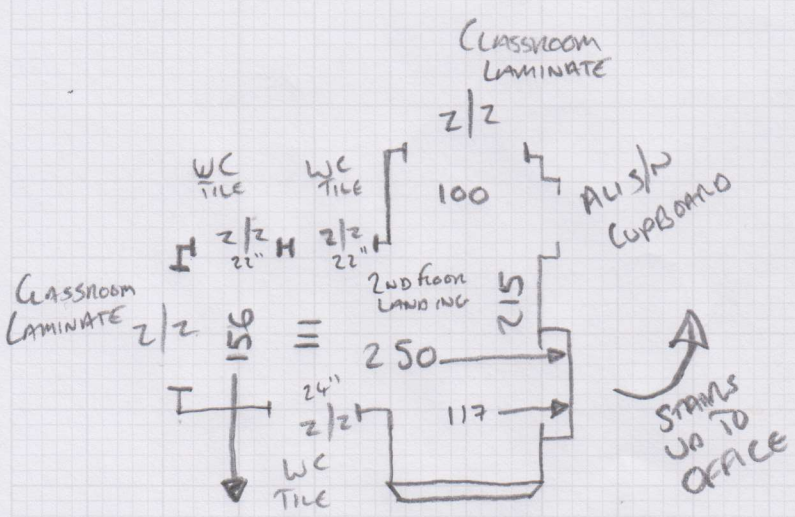 CLASSROOM
LAMINATE
Z/Z
WC
TILE
WC
TILE
100
CUPBOARD
Z/Z
22"
H
Z/Z
22"
2ND FLOOR
LANDING
215
CLASSROOM
LAMINATE
Z/Z
156
250
24"
Z/Z
117
WC
TILE
STAIRS
UP TO
OFFICE